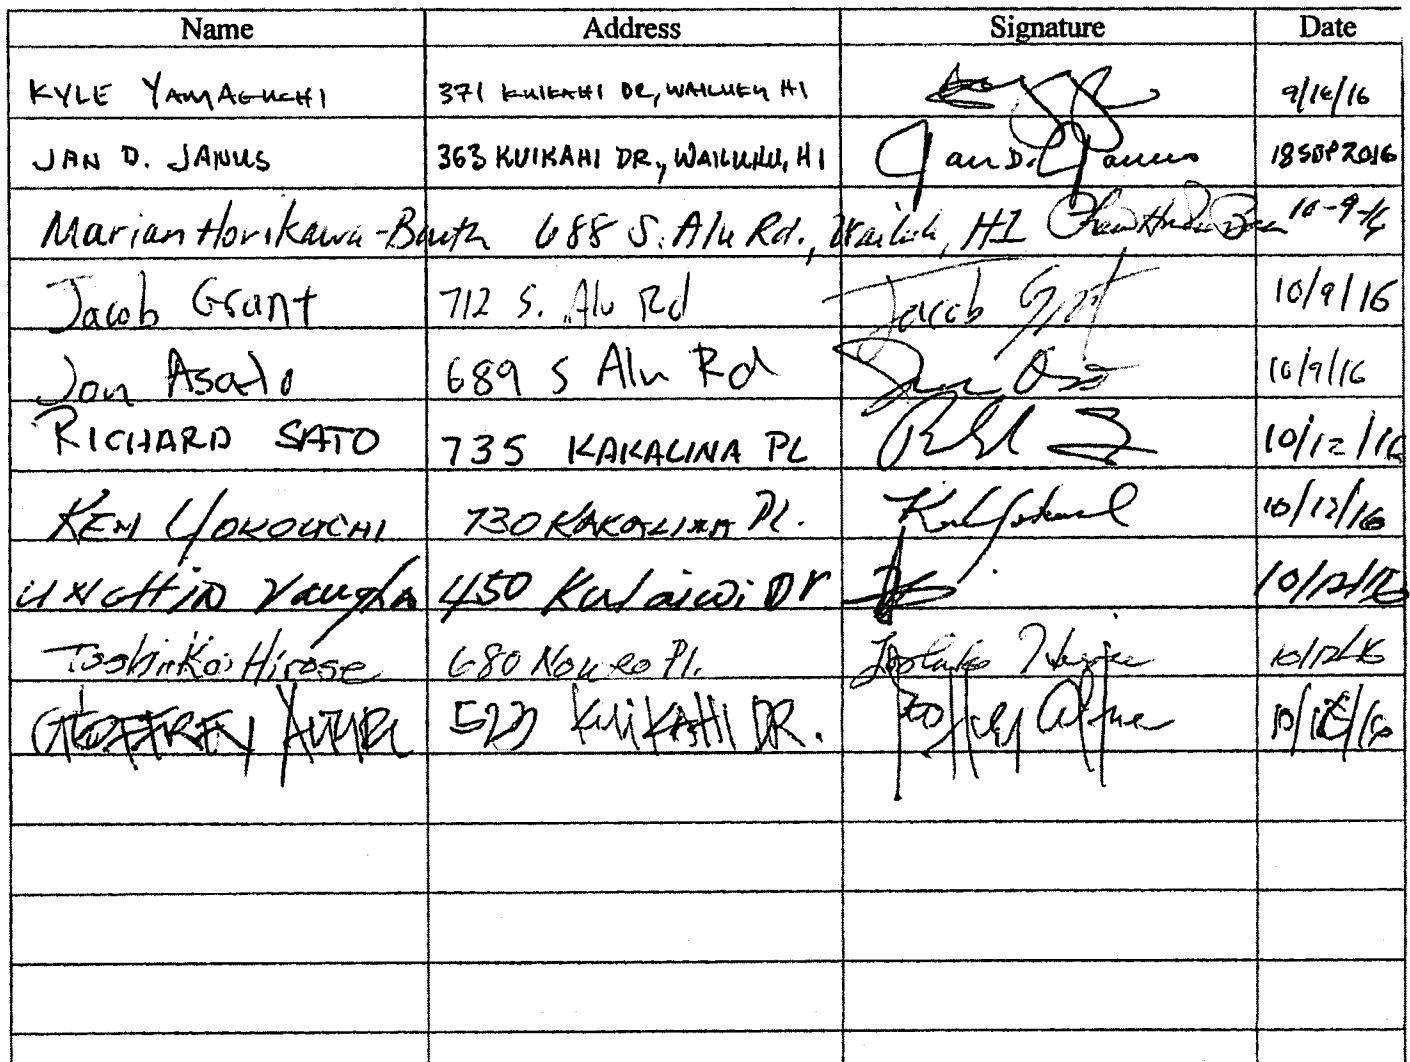 Name Address Signature Date
KYLE YAMAGUCHI 371 KUIKAHI DR, WAILUKU HI 9/16/16
JAN D. JANUS 363 KUIKAHI DR., WAILUKU, HI Jan D. Janus 18 SEP 2016
Marian Horikawa-Barth 688 S. Alu Rd., Wailuku, HI 10-9-16
Jacob Grant 712 S. Alu Rd Jacob Grant 10/9/16
Jon Asato 689 S Alu Rd 10/9/16
RICHARD SATO 735 KAKALINA PL 10/12/16
KEN YOKOUCHI 730 KAKALINA Pl. Ken Yokouchi 10/12/16
Vaughn 450 Kulaiwi Dr 10/12/16
Toshiko Hirose 680 Pl. Toshiko Hirose 10/12/16
GEOFFREY 523 KUIKAHI DR. 10/12/16